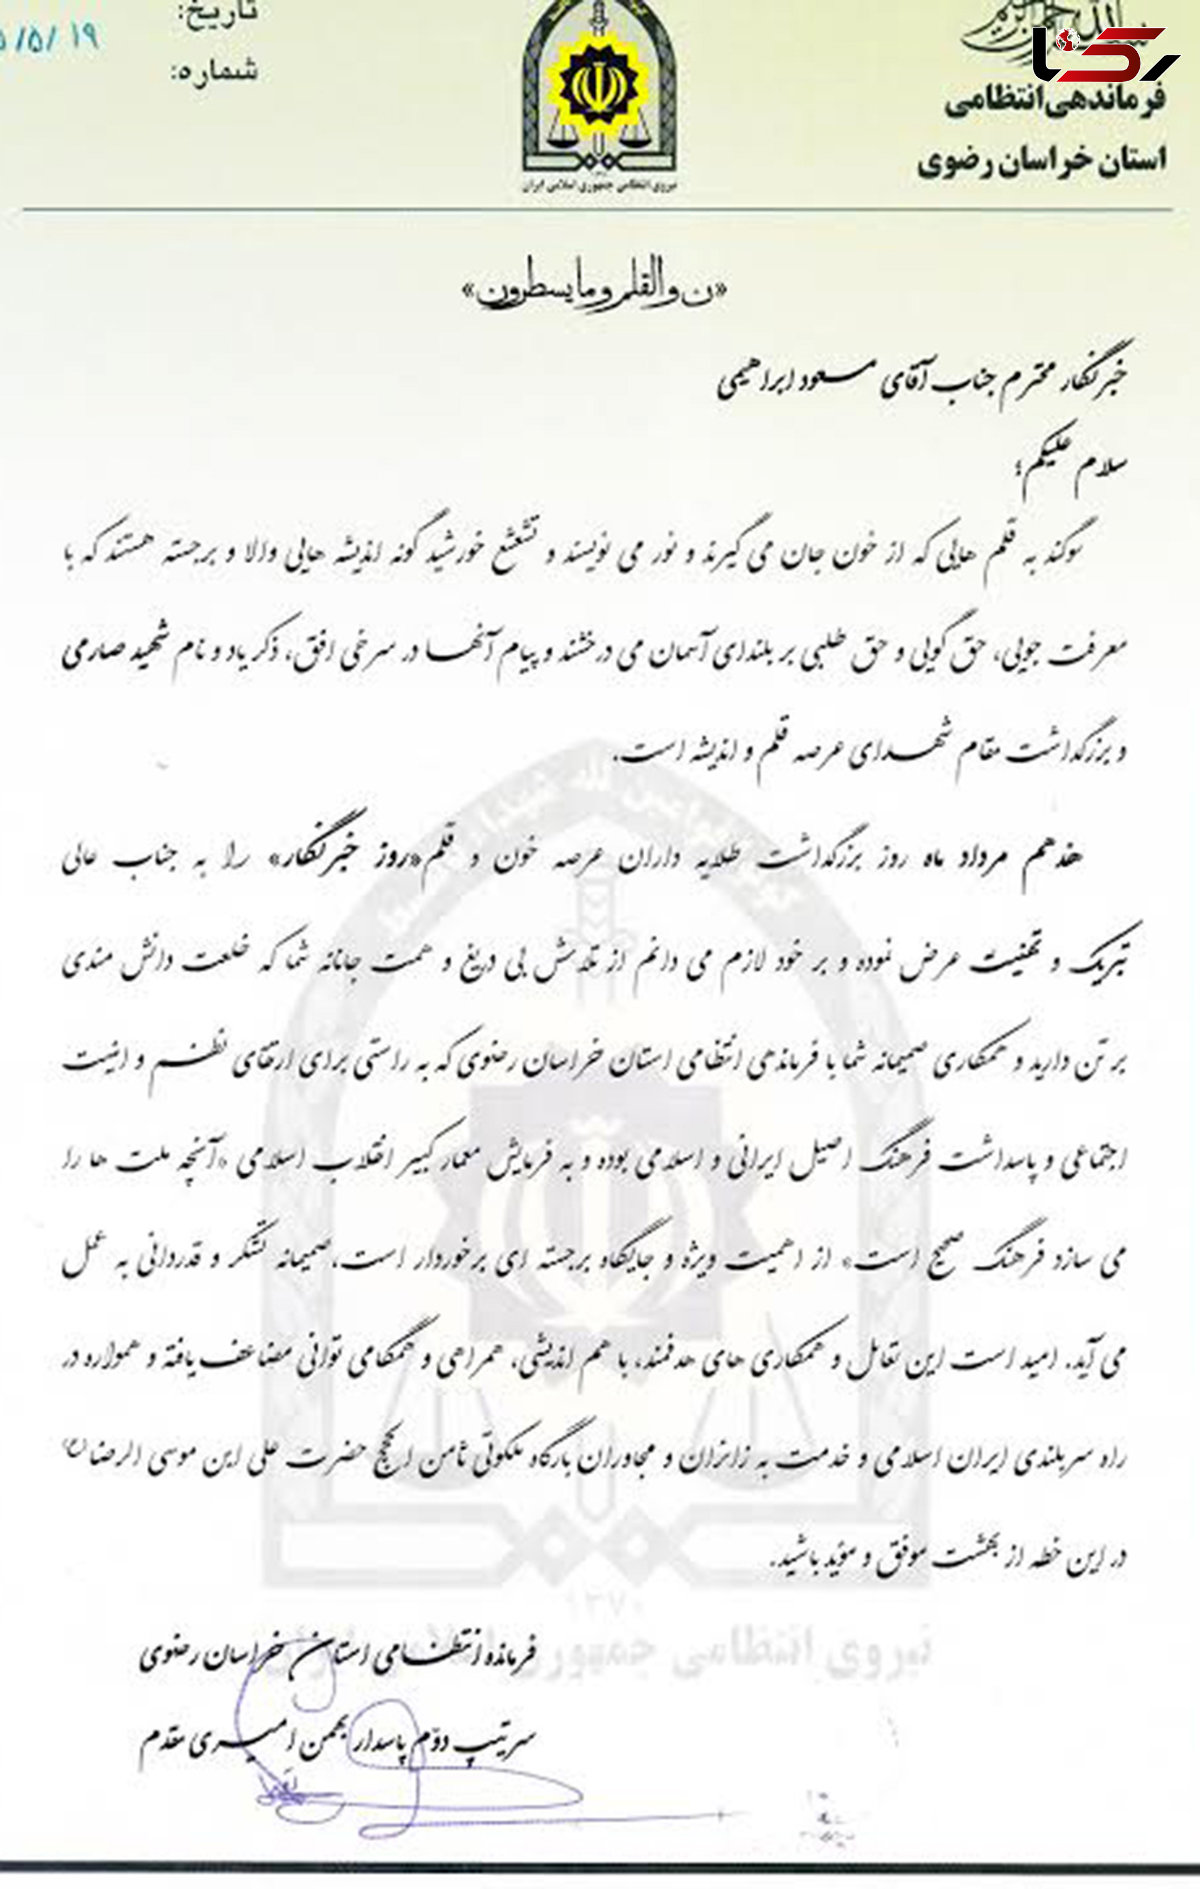 بسم الله الرحمن الرحیم
رکنا
فرماندهی انتظامی
استان خراسان رضوی
نیروی انتظامی جمهوری اسلامی ایران
تاریخ:
/۵/۱۹
شماره:
«ن والقلم و ما یسطرون»
خبرنگار محترم جناب آقای مسعود ابراهیمی
سلام علیکم؛
سوگند به قلم هایی که از خون جان می گیرند و نور می نویسند و تشعشع خورشید گونه اندیشه هایی والا و برجسته هستند که با
معرفت جویی، حق گویی و حق طلبی بر بلندای آسمان می درخشند و پیام آنها در سرخی افق، ذکر یاد و نام شهید صارمی
و بزرگداشت مقام شهدای عرصه قلم و اندیشه است.
هفدهم مرداد ماه روز بزرگداشت طلایه داران عرصه خون و قلم«روز خبرنگار» را به جناب عالی
تبریک و تهنیت عرض نموده و بر خود لازم می دانم از تلاش بی دریغ و همت جانانه شما که خلعت دانش مندی
بر تن دارید و همکاری صمیمانه شما با فرماندهی انتظامی استان خراسان رضوی که به راستی برای ارتقای نظم و امنیت
اجتماعی و پاسداشت فرهنگ اصیل ایرانی و اسلامی بوده و به فرمایش معمار کبیر انقلاب اسلامی «آنچه ملت ها را
می سازد فرهنگ صحیح است» از اهمیت ویژه و جایگاه برجسته ای برخوردار است، صمیمانه تشکر و قدردانی به عمل
می آید. امید است این تعامل و همکاری های هدفمند، با هم اندیشی، همراهی و همگامی توانی مضاعف یافته و همواره در
راه سربلندی ایران اسلامی و خدمت به زائران و مجاوران بارگاه ملکوتی ثامن الحجج حضرت علی ابن موسی الرضا(ع)
در این خطه از بهشت موفق و مؤید باشید.
فرمانده انتظامی استان خراسان رضوی
سرتیپ دوّم پاسدار بهمن امیری مقدم
۱۳۷۰
نیروی انتظامی جمهوری اسلامی ایران